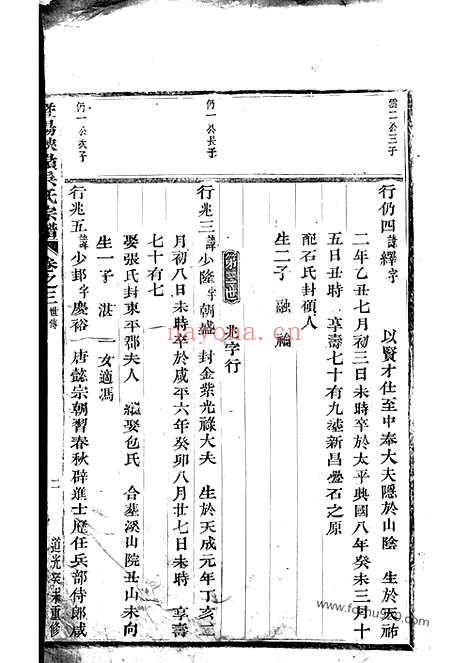 雲二公三子
行仍四諱繹字　以賢才仕至中奉大夫隱於山陰　生於天祐
二年乙丑七月初三日未時卒於太平興國八年癸未三月十
五日丑時　享壽七十有九塟新昌疊石之原
配石氏封碩人
生二子　融　綸
第三世　兆字行
仍一公長子
行兆三諱少隆字朝盛　封金紫光祿大夫　生於天成元年丁亥三
月初八日未時卒於咸平六年癸卯八月廿七日未時　享壽
七十有七
娶張氏封東平郡夫人　繼娶包氏　合塟溪山院丑山未向
生一子　湛　一女適馮
仍一公次子
行兆五諱少邽字慶裕　唐懿宗朝習春秋辟進士歷任兵部侍郎咸
吳氏宗譜　卷之三　世傳　二　道光癸未重修
nayona.cn